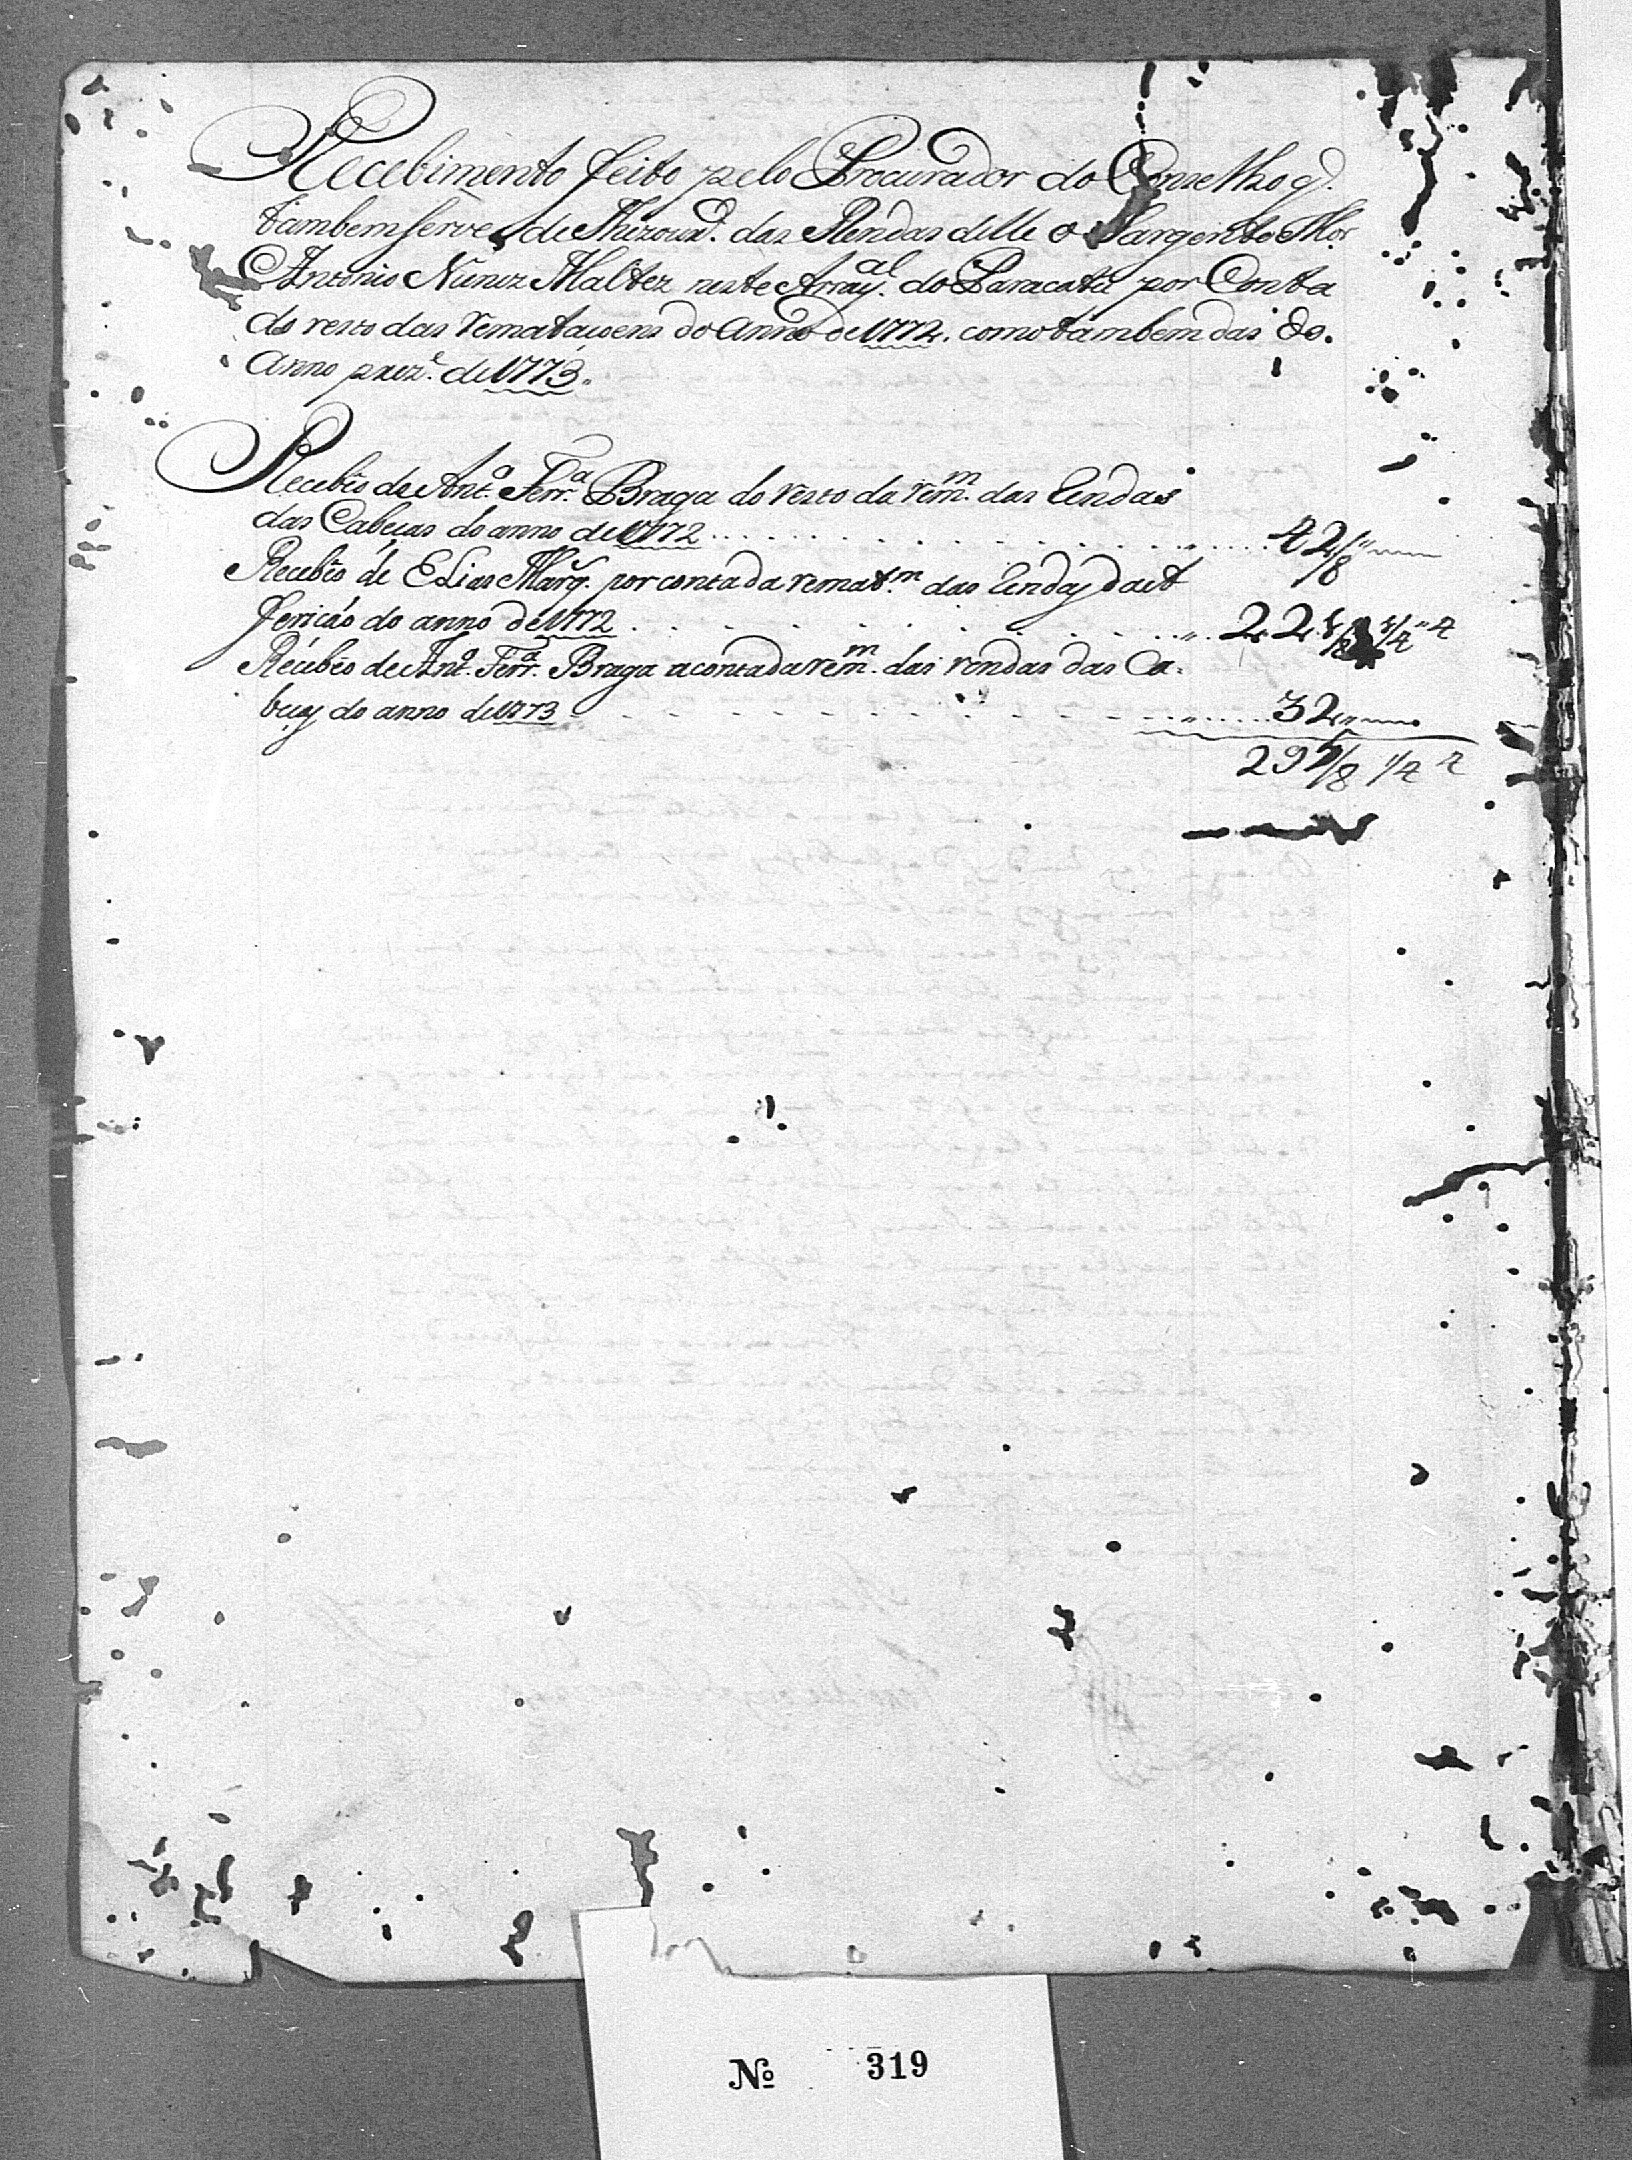 Recebimento feito pelo Procurador do Conselho q̃.
tambem serve de Thizourd.ᵒ das Rendas delle o Sargento Mor
Antonio Nunez Maltez neste Array.ᵃˡ do Paracatú por Conta
do resto das rematasoens do Anno de 1772. como tambem das do.
Anno prez.ᵉ de 1773.
Recebêo de Ant.ᵒ Ferr.ᵃ Braga do resto da rem.ᵐ das Rendas
das Cabeças do anno de 1772 42/8
Recebêo de Elias Marq̃. por conta da remat.ᵐ das Rendas da A
fericáo do anno de 1772 221/8 1/4 4
Recebêo de Ant.ᵒ Ferr.ᵃ Braga a conta da rem.ᵐ das rendas das Ca.
beças do anno de 1773 32
295/8 1/4 4
Nº 319